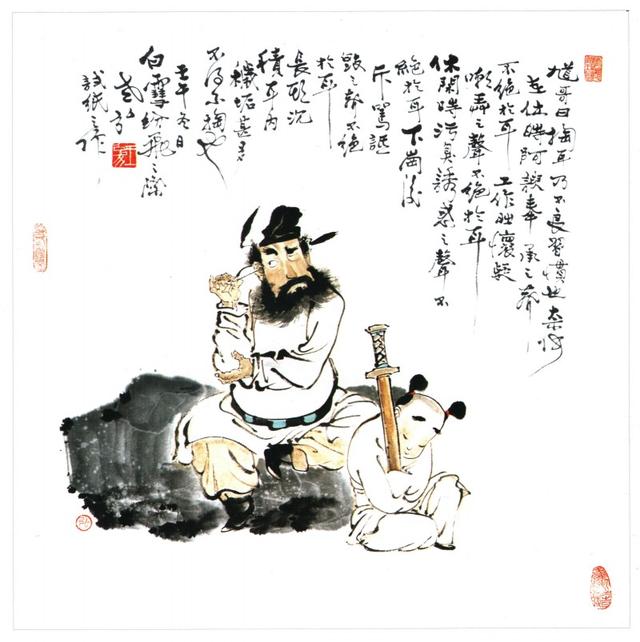 馗哥曰掏耳乃不良習慣也奈何
在仕時阿諛奉承之聲
不絕於耳 工作時懷疑
嘲弄之聲不絕於耳
休閑時誘惑之聲不
絕於耳下崗後
斥罵詆
毀之聲不絕
於耳
長期沉
積耳內
穢垢甚多
不得不掏也
壬午冬日
白雪紛飛之際
試紙之作